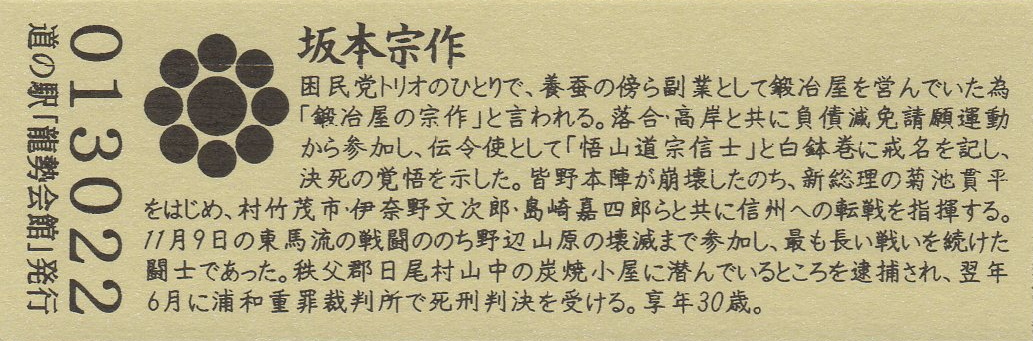 坂本宗作
困民党トリオのひとりで、養蚕の傍ら副業として鍛冶屋を営んでいた為
「鍛冶屋の宗作」と言われる。落合・高岸と共に負債減免請願運動
から参加し、伝令使として「悟山道宗信士」と白鉢巻に戒名を記し、
決死の覚悟を示した。皆野本陣が崩壊したのち、新総理の菊池貫平
をはじめ、村竹茂市・伊奈野文次郎・島崎嘉四郎らと共に信州への転戦を指揮する。
11月9日の東馬流の戦闘ののち野辺山原の壊滅まで参加し、最も長い戦いを続けた
闘士であった。秩父郡日尾村山中の炭焼小屋に潜んでいるところを逮捕され、翌年
6月に浦和重罪裁判所で死刑判決を受ける。享年30歳。
013022
道の駅「龍勢会館」発行